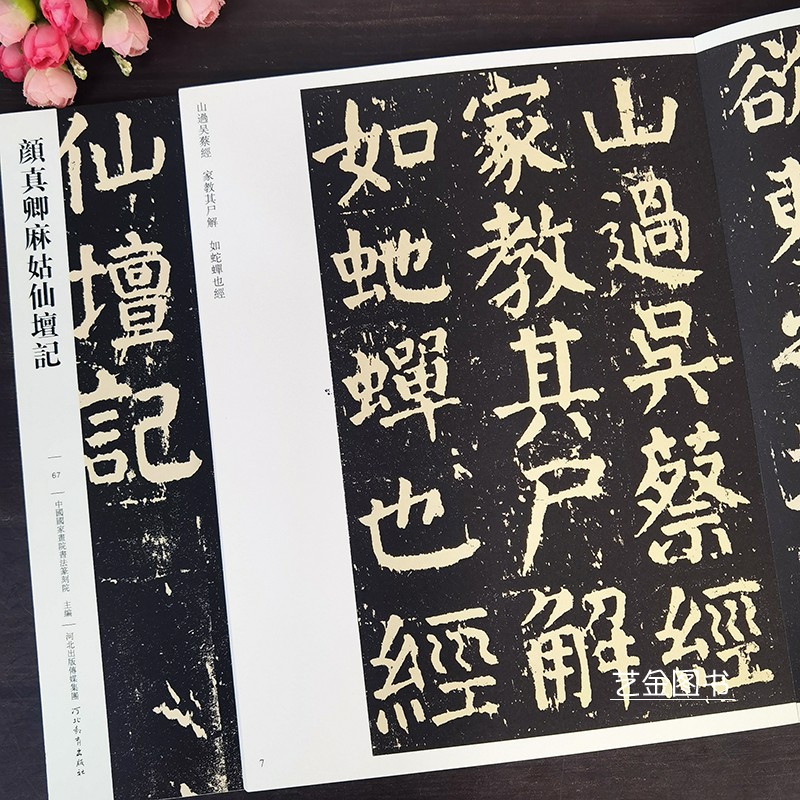 顔真卿麻姑仙壇記
67
中國國家畫院書法篆刻院 主編
河北出版傳媒集團 河北教育出版社
仙壇記
山過吴蔡經 家教其尸解 如蛇蟬也經
欲
山過吳蔡經
家教其尸解
如虵蟬也經
7
艺金图书